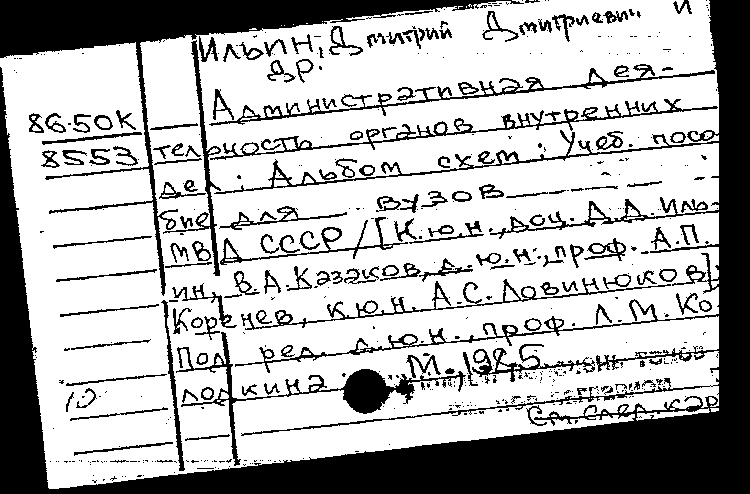 Ильин, Дмитрий Дмитриевич и
др.
86.50К Административная дея-
8553 тельность органов внутренних
дел: Альбом схем: Учеб. посо
бие для вузов
МВД СССР/[К.ю.н., доц. Д.Д. Иль-
ин, В.А. Казаков, д.ю.н., проф. А.П.
Коренев, к.ю.н. А.С. Ловинюков]
Под ред. д.ю.н., проф. Л.М. Ко
10 лодкина. М., 1985.
перечень томов
под заглавием
См. след. кар